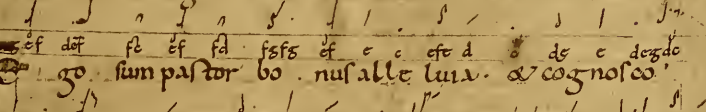 gef def fe ef fd fgfg ef e c efe d d de e degde
Ego sum pastor bo nus alle luia. & cognosco